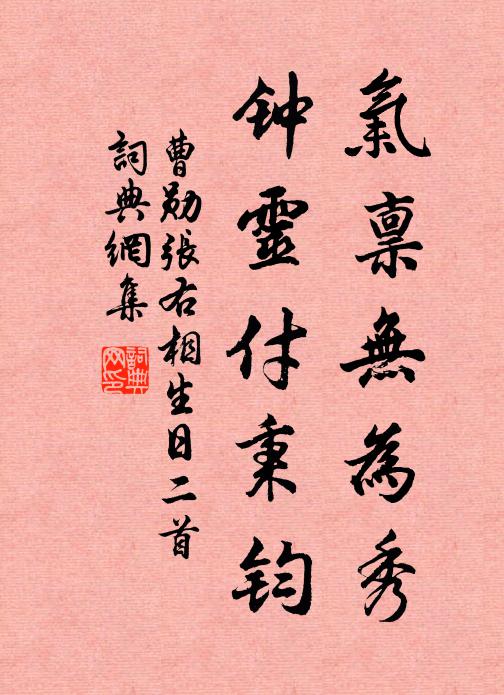 氣稟無為秀
钟靈付秉鈞
曹勛張右相生日二首
詞典網集
詞典网印